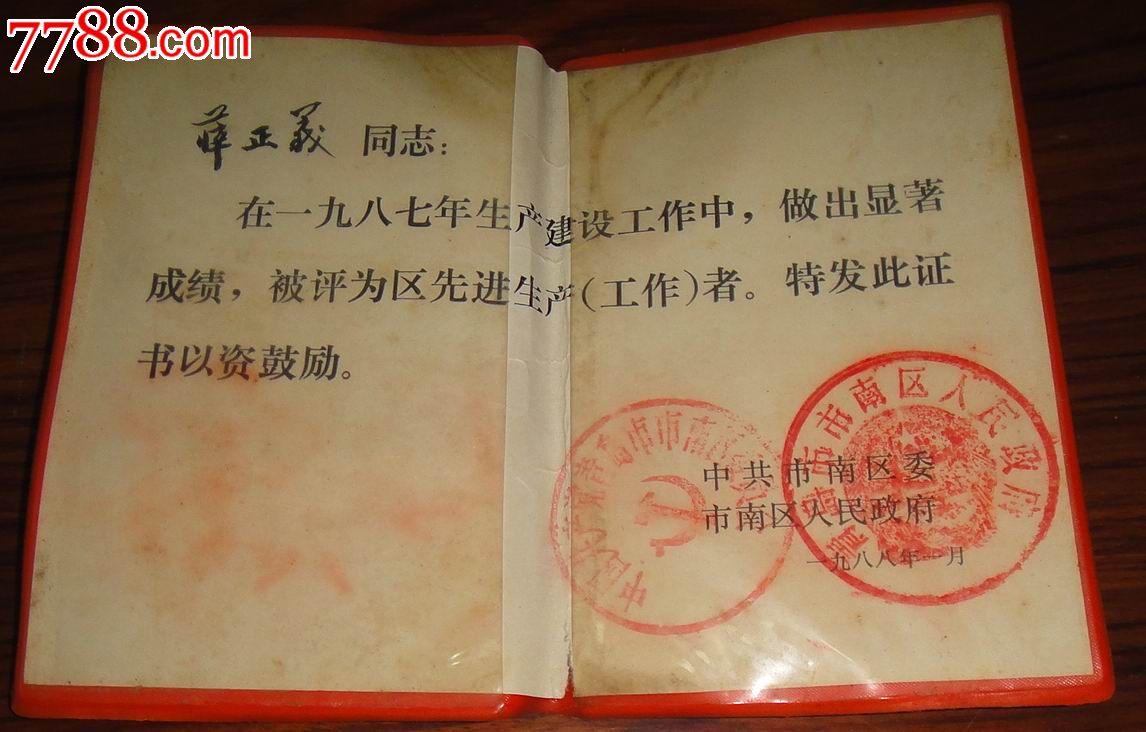 7788.com
薛正義 同志：
在一九八七年生产建设工作中，做出显著
成绩，被评为区先进生产（工作）者。特发此证
书以资鼓励。
中共市南区委
市南区人民政府
一九八八年一月
青岛市市南区人民政府